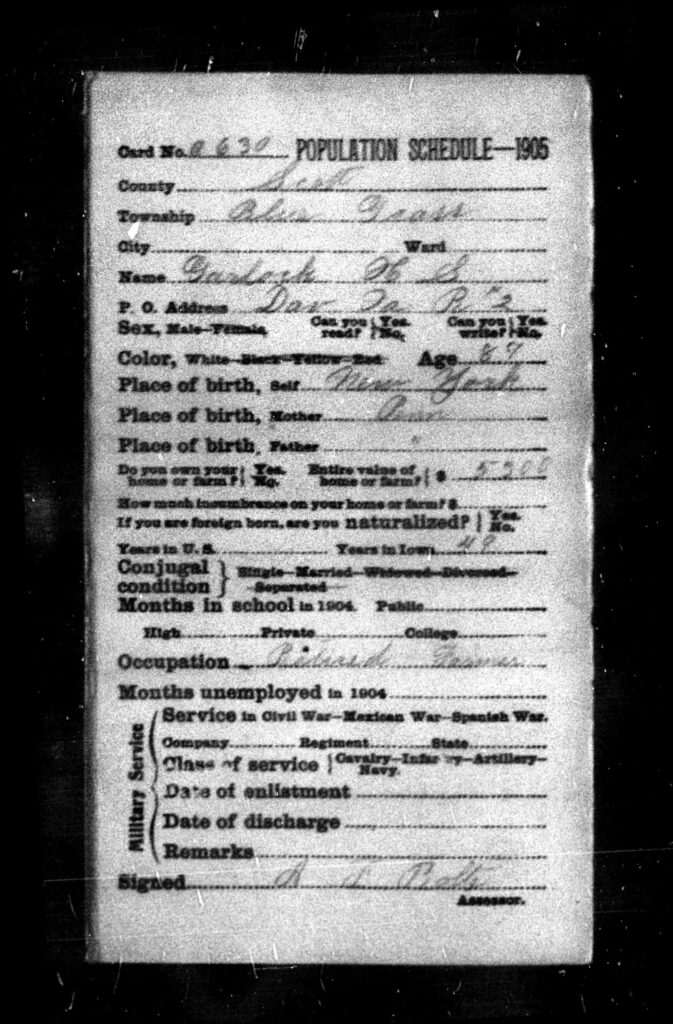 Card No. a 630 POPULATION SCHEDULE—1905
County Scott
Township Blue Grass
City Ward
Name Garlock H S
P. O. Address Dav Ia R #2
Sex, Male—Female, Can you read? Yes. No. Can you write? Yes. No.
Color, White—Black—Yellow—Red Age 87
Place of birth, Self New York
Place of birth, Mother Penn
Place of birth, Father "
Do you own your home or farm? Yes. No. Entire value of home or farm? $ 5300
How much incumbrance on your home or farm? $
If you are foreign born, are you naturalized? Yes. No.
Years in U. S. Years in Iowa 49
Conjugal condition Single—Married—Widowed—Divorced—Separated
Months in school in 1904. Public
High Private College
Occupation Retired Farmer
Months unemployed in 1904
Military Service
Service in Civil War—Mexican War—Spanish War.
Company Regiment State
Class of service Cavalry—Infantry—Artillery—Navy.
Date of enlistment
Date of discharge
Remarks
Signed
Assessor.